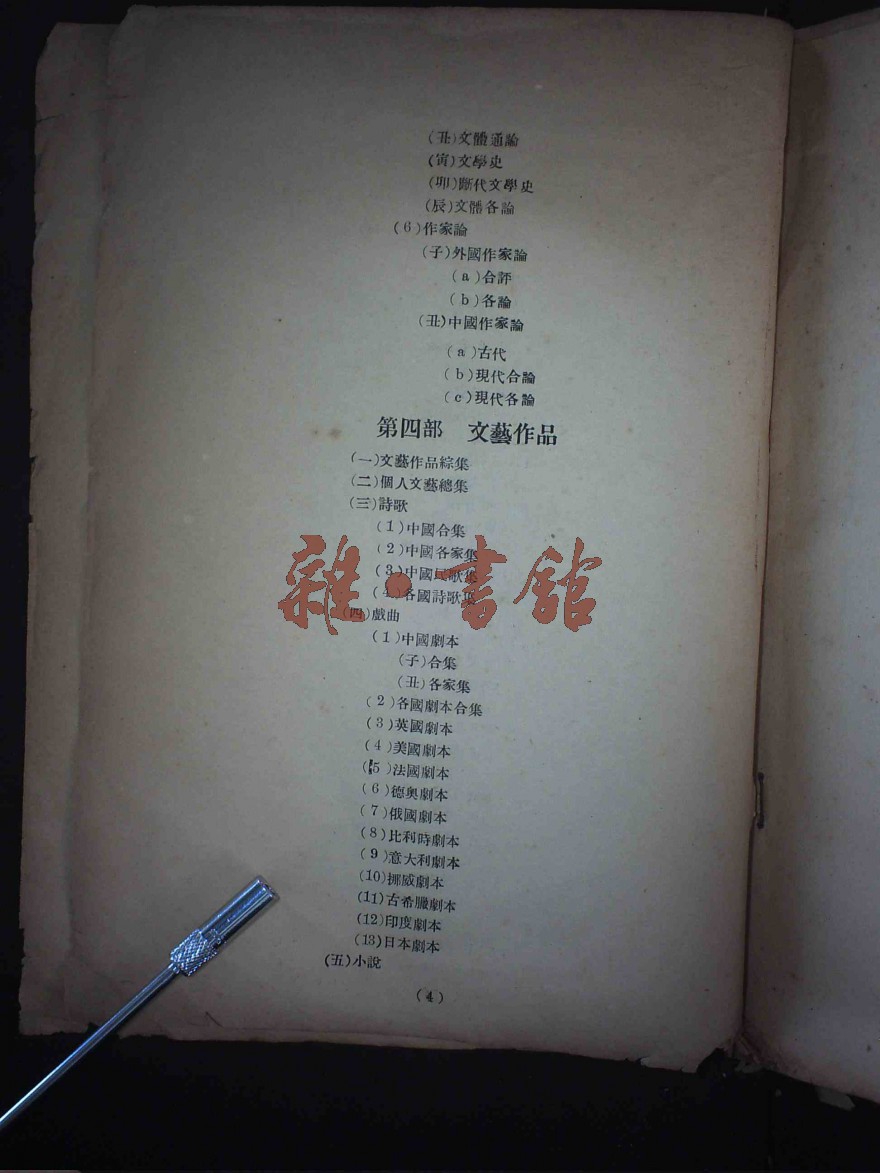 (丑)文體通論
(寅)文學史
(卯)斷代文學史
(辰)文體各論
(6)作家論
(子)外國作家論
(a)合評
(b)各論
(丑)中國作家論
(a)古代
(b)現代合論
(c)現代各論
第四部 文藝作品
(一)文藝作品綜集
(二)個人文藝總集
(三)詩歌
(1)中國合集
(2)中國各家集
(3)中國民歌集
(4)各國詩歌集
雜·書館
(四)戲曲
(1)中國劇本
(子)合集
(丑)各家集
(2)各國劇本合集
(3)英國劇本
(4)美國劇本
(5)法國劇本
(6)德奧劇本
(7)俄國劇本
(8)比利時劇本
(9)意大利劇本
(10)挪威劇本
(11)古希臘劇本
(12)印度劇本
(13)日本劇本
(五)小說
(4)